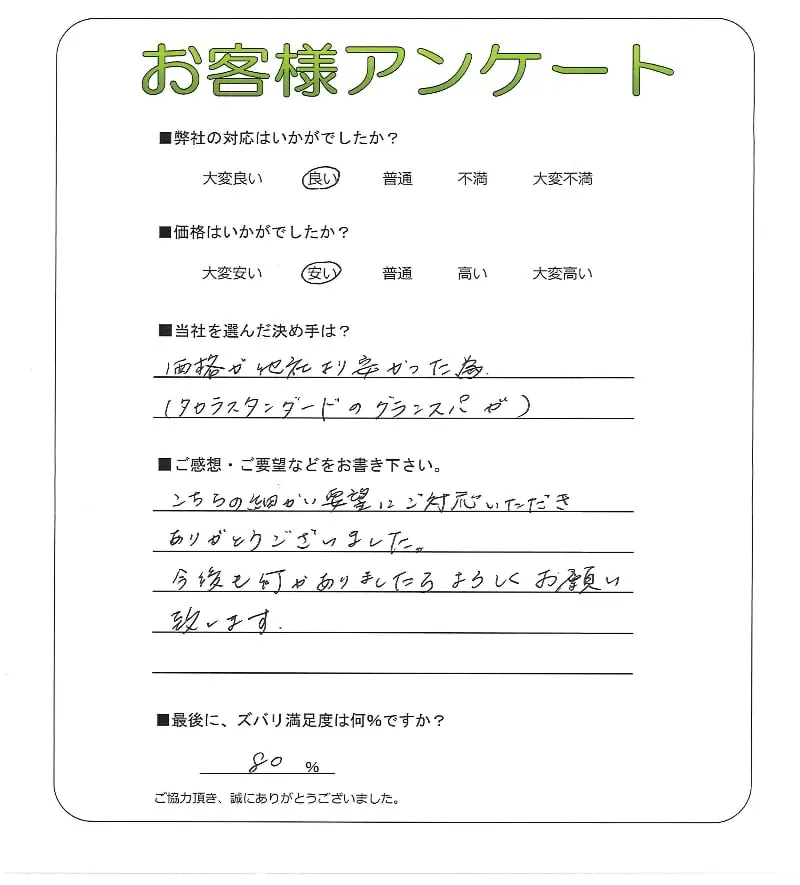 お客様アンケート
■弊社の対応はいかがでしたか？
大変良い 良い 普通 不満 大変不満
■価格はいかがでしたか？
大変安い 安い 普通 高い 大変高い
■当社を選んだ決め手は？
価格が他社より安かった為.
(タカラスタンダードのグランスパが)
■ご感想・ご要望などをお書き下さい。
こちらの細かい要望にご対応いただき
ありがとうございました。
今後も何かありましたらよろしくお願い
致します.
■最後に、ズバリ満足度は何％ですか？
80 %
ご協力頂き、誠にありがとうございました。